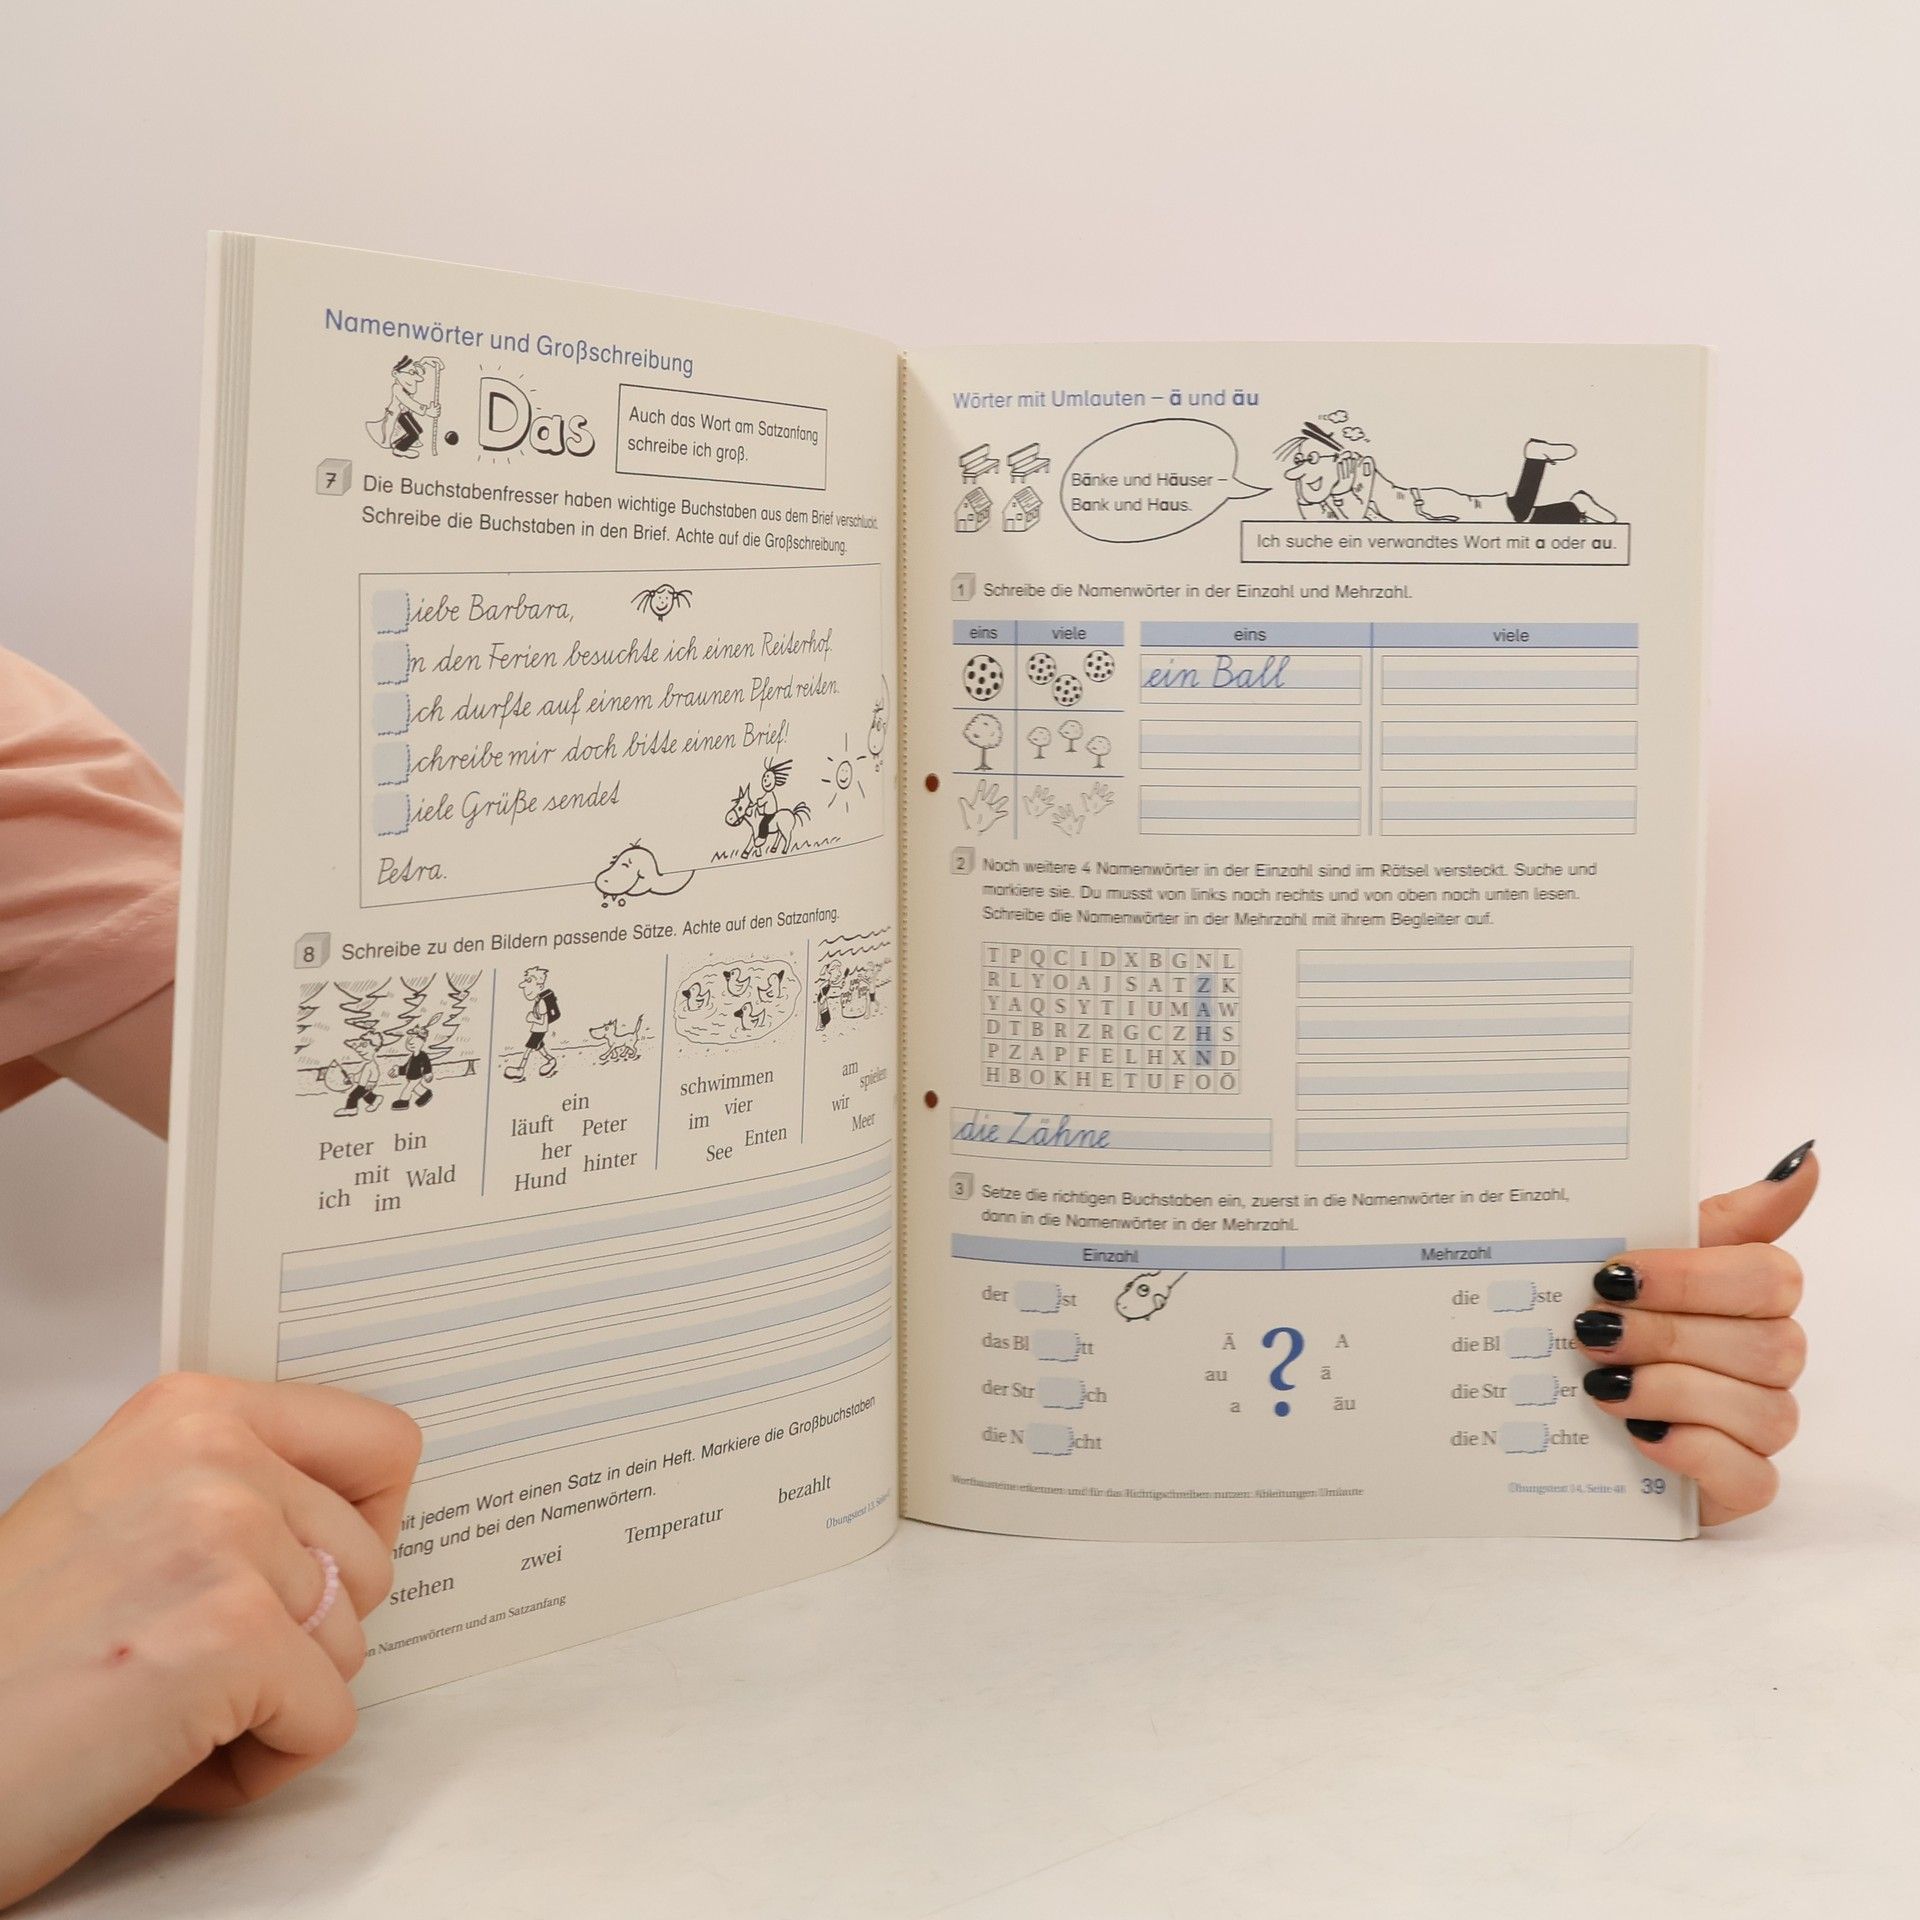 Namenwörter und Großschreibung
. Das
Auch das Wort am Satzanfang
schreibe ich groß.
7 Die Buchstabenfresser haben wichtige Buchstaben aus dem Brief verschluckt.
Schreibe die Buchstaben in den Brief. Achte auf die Großschreibung.
iebe Barbara,
n den Ferien besuchte ich einen Reiterhof.
ch durfte auf einem braunen Pferd reiten.
chreibe mir doch bitte einen Brief!
iele Grüße sendet
Petra.
8 Schreibe zu den Bildern passende Sätze. Achte auf den Satzanfang.
Peter bin
mit Wald
ich im
ein
läuft Peter
her
Hund hinter
schwimmen
im vier
See Enten
am
spielen
wir
Meer
mit jedem Wort einen Satz in dein Heft. Markiere die Großbuchstaben
nfang und bei den Namenwörtern.
stehen zwei Temperatur bezahlt
Übungstext 13, Seite
on Namenwörtern und am Satzanfang
Wörter mit Umlauten – ä und äu
Bänke und Häuser –
Bank und Haus.
Ich suche ein verwandtes Wort mit a oder au.
1 Schreibe die Namenwörter in der Einzahl und Mehrzahl.
eins viele eins viele
ein Ball
2 Noch weitere 4 Namenwörter in der Einzahl sind im Rätsel versteckt. Suche und
markiere sie. Du musst von links nach rechts und von oben nach unten lesen.
Schreibe die Namenwörter in der Mehrzahl mit ihrem Begleiter auf.
T P Q C I D X B G N L
R L Y O A J S A T Z K
Y A Q S Y T I U M A W
D T B R Z R G C Z H S
P Z A P F E L H X N D
H B O K H E T U F O Ö
die Zähne
3 Setze die richtigen Buchstaben ein, zuerst in die Namenwörter in der Einzahl,
dann in die Namenwörter in der Mehrzahl.
Einzahl Mehrzahl
der st die ste
das Bl tt Ä ? A die Bl tte
au ä
der Str ch die Str er
a äu
die N cht die N chte
Wortbausteine erkennen und für das Richtigschreiben nutzen: Ableitungen Umlaute
Übungstext 14, Seite 48 39